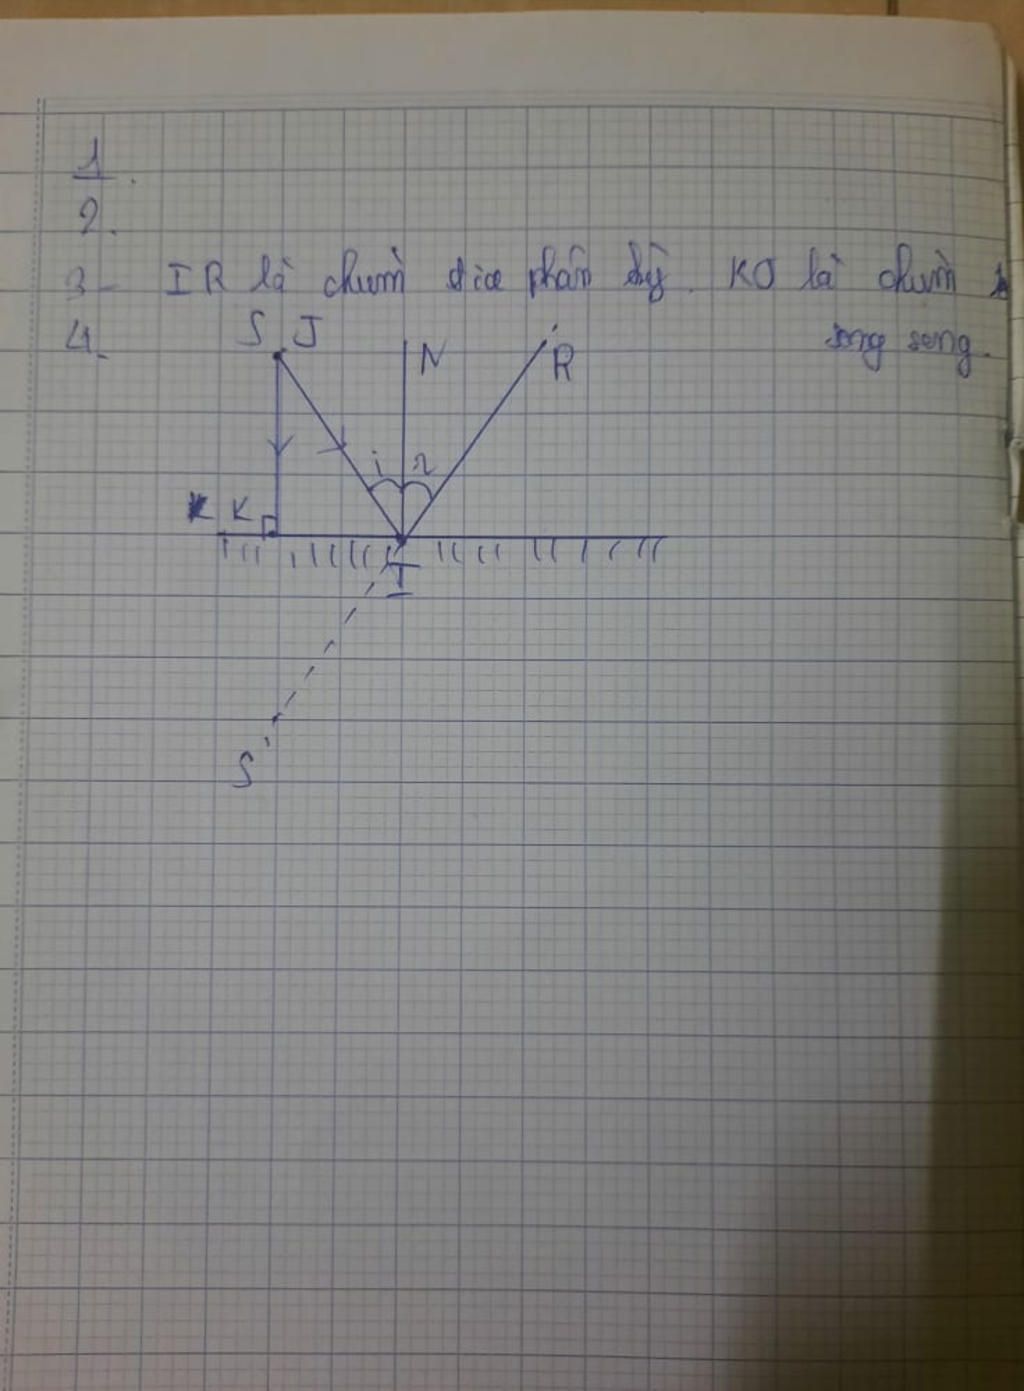 1.
2.
3- IR là chùm tia phân kỳ. KO là chùm
song song.
4.
S J
N
R
i r
K K
I
S'